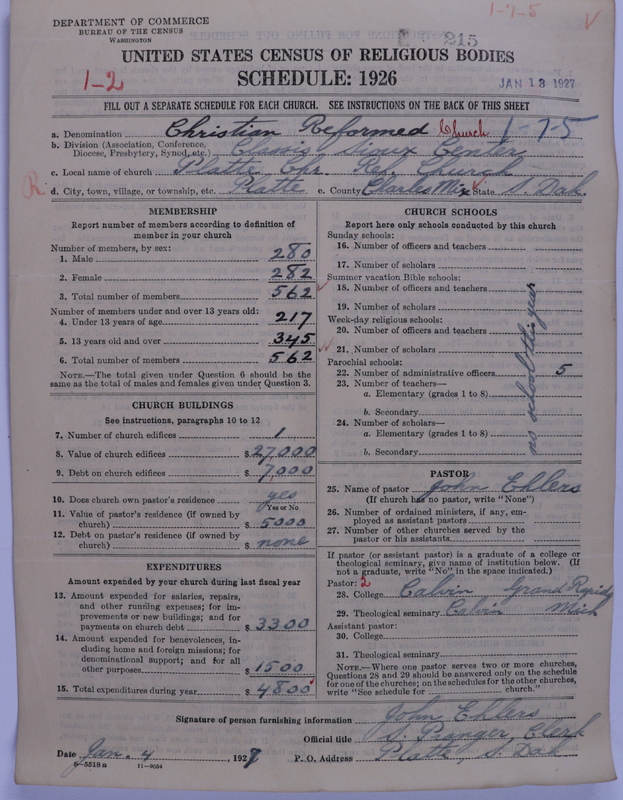 DEPARTMENT OF COMMERCE
BUREAU OF THE CENSUS
WASHINGTON
1-7-5
215
UNITED STATES CENSUS OF RELIGIOUS BODIES
SCHEDULE: 1926
1-2
JAN 13 1927
FILL OUT A SEPARATE SCHEDULE FOR EACH CHURCH. SEE INSTRUCTIONS ON THE BACK OF THIS SHEET
a. Denomination Christian Reformed Church 1-7-5
b. Division (Association, Conference, Diocese, Presbytery, Synod, etc.) Classis Sioux Center
c. Local name of church Platte Chr. Ref. Church
d. City, town, village, or township, etc. Platte e. County Charles Mix State S. Dak
MEMBERSHIP
Report number of members according to definition of
member in your church
Number of members, by sex:
1. Male 280
2. Female 282
3. Total number of members 562
Number of members under and over 13 years old:
4. Under 13 years of age 217
5. 13 years old and over 345
6. Total number of members 562
NOTE.—The total given under Question 6 should be the
same as the total of males and females given under Question 3.
CHURCH BUILDINGS
See instructions, paragraphs 10 to 12
7. Number of church edifices 1
8. Value of church edifices $ 27,000
9. Debt on church edifices $ 7,000
10. Does church own pastor's residence yes
Yes or No
11. Value of pastor's residence (if owned by
church) $ 5000
12. Debt on pastor's residence (if owned by
church) $ none
EXPENDITURES
Amount expended by your church during last fiscal year
13. Amount expended for salaries, repairs,
and other running expenses; for im-
provements or new buildings; and for
payments on church debt $ 3300
14. Amount expended for benevolences, in-
cluding home and foreign missions; for
denominational support; and for all
other purposes $ 1500
15. Total expenditures during year $ 4800
CHURCH SCHOOLS
Report here only schools conducted by this church
Sunday schools:
16. Number of officers and teachers
17. Number of scholars
Summer vacation Bible schools:
18. Number of officers and teachers
19. Number of scholars
Week-day religious schools:
20. Number of officers and teachers
21. Number of scholars
Parochial schools:
22. Number of administrative officers 5
23. Number of teachers—
a. Elementary (grades 1 to 8)
b. Secondary
24. Number of scholars—
a. Elementary (grades 1 to 8)
b. Secondary
no school this year
PASTOR
25. Name of pastor John Ehlers
(If church has no pastor, write "None")
26. Number of ordained ministers, if any, em-
ployed as assistant pastors
27. Number of other churches served by the
pastor or his assistants
If pastor (or assistant pastor) is a graduate of a college or
theological seminary, give name of institution below. (If
not a graduate, write "No" in the space indicated.)
Pastor: 2
28. College Calvin Grand Rapids
29. Theological seminary Calvin Mich
Assistant pastor:
30. College
31. Theological seminary
NOTE.—Where one pastor serves two or more churches,
Questions 28 and 29 should be answered only on the schedule
for one of the churches; on the schedules for the other churches,
write "See schedule for church."
Signature of person furnishing information John Ehlers
Official title S. Pranger, Clerk
Date Jan. 4, 1927 P. O. Address Platte, S. Dak
8-5518a 11-9054